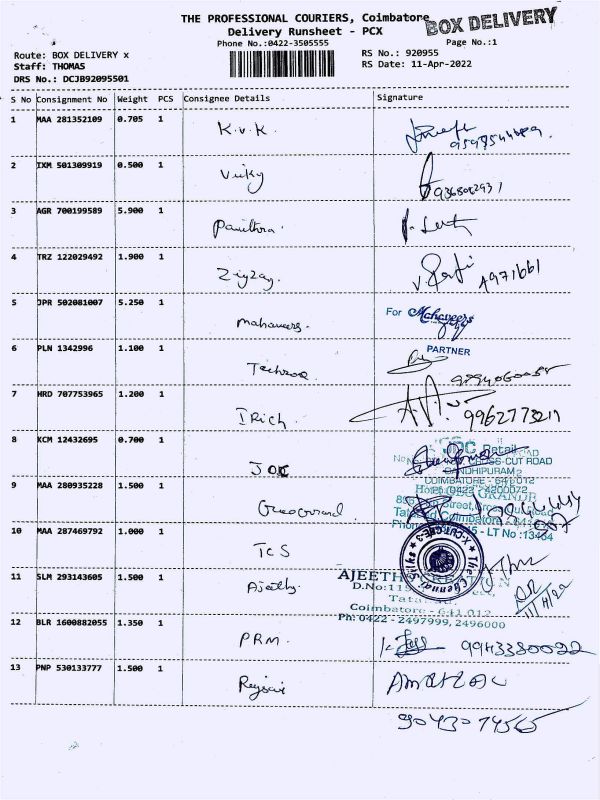 THE PROFESSIONAL COURIERS, Coimbatore
BOX DELIVERY
Delivery Runsheet - PCX
Phone No.:0422-3505555
Page No.:1
Route: BOX DELIVERY x
RS No.: 920955
Staff: THOMAS
RS Date: 11-Apr-2022
DRS No.: DCJB92095501
S No Consignment No Weight PCS Consignee Details Signature
1 MAA 281352109 0.705 1 K.V.K.
2 IXM 501309919 0.500 1 Vicky
3 AGR 700199589 5.900 1 Pavithra.
4 TRZ 122029492 1.900 1 Zigzag. A971661
5 JPR 502081007 5.250 1 Mahaveers. For Mahaveers
PARTNER
6 PLN 1342996 1.100 1
7 HRD 707753965 1.200 1 IRich. 9962773217
8 KCM 12432695 0.700 1 JOC JOC Retail
CROSS-CUT ROAD
GANDHIPURAM
COIMBATORE - 641 012
9 MAA 280935228 1.500 1
10 MAA 287469792 1.000 1 TCS The Chennai Silks
11 SLM 293143605 1.500 1 Ajeeth.
Coimbatore - 641 012
Ph: 0422 - 2497999, 2496000
11/4/22
12 BLR 1600882055 1.350 1 PRM. 9943380022
13 PNP 530133777 1.500 1
9043074565